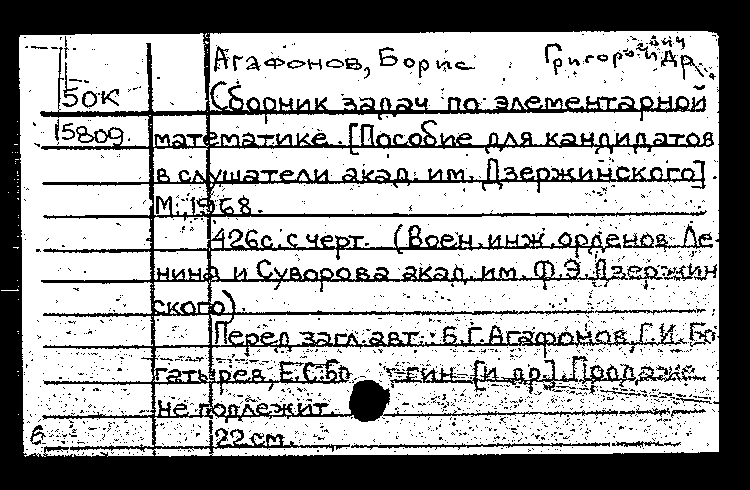 Агафонов, Борис Григорьевич и др.
50к Сборник задач по элементарной
15809. математике. [Пособие для кандидатов
в слушатели акад. им. Дзержинского].
М., 1968.
426с. с черт. (Воен. инж. орденов Ле-
нина и Суворова акад. им. Ф.Э. Дзержин
ского).
Перед загл. авт.: Б.Г. Агафонов, Г.И. Бо
гатырев, Е.С. [и др]. Продаже
не подлежит.
22 см.
6